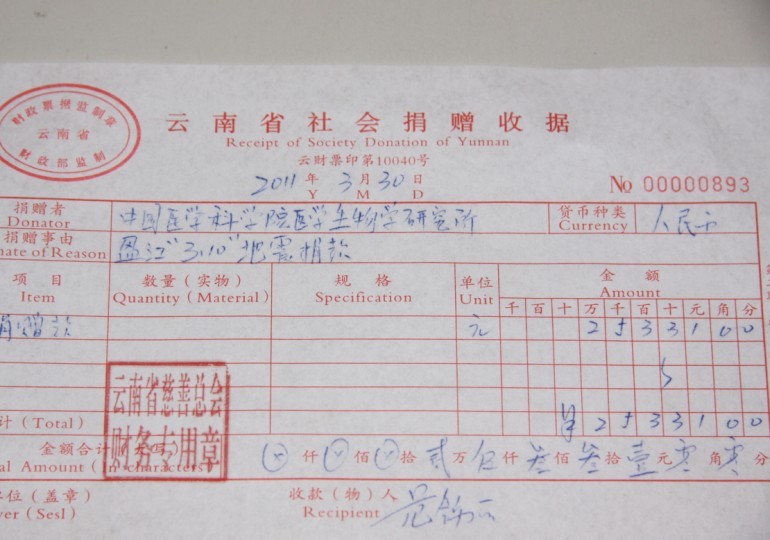 财政票据监制章
云南省
财政部监制
云南省社会捐赠收据
Receipt of Society Donation of Yunnan
云财票印第10040号
2011 年 3 月 30 日
Y M D
No 00000893
捐赠者 中国医学科学院医学生物学研究所 货币种类 人民币
Donator Currency
捐赠事由 盈江"3.10"地震捐款
nate of Reason
项目 数量(实物) 规格 单位 金额
Item Quantity (Material) Specification Unit Amount
千 百 十 万 千 百 十 元 角 分
捐赠款 元 2 5 3 3 1 0 0
云南省慈善总会
财务专用章
计(Total) ¥ 2 5 3 3 1 0 0
金额合计 仟 佰 拾 贰 万 伍 仟 叁 佰 叁 拾 壹 元 零 角 零 分
al Amount (In characters)
单位(盖章) 收款(物)人
ver (Sesl) Recipient